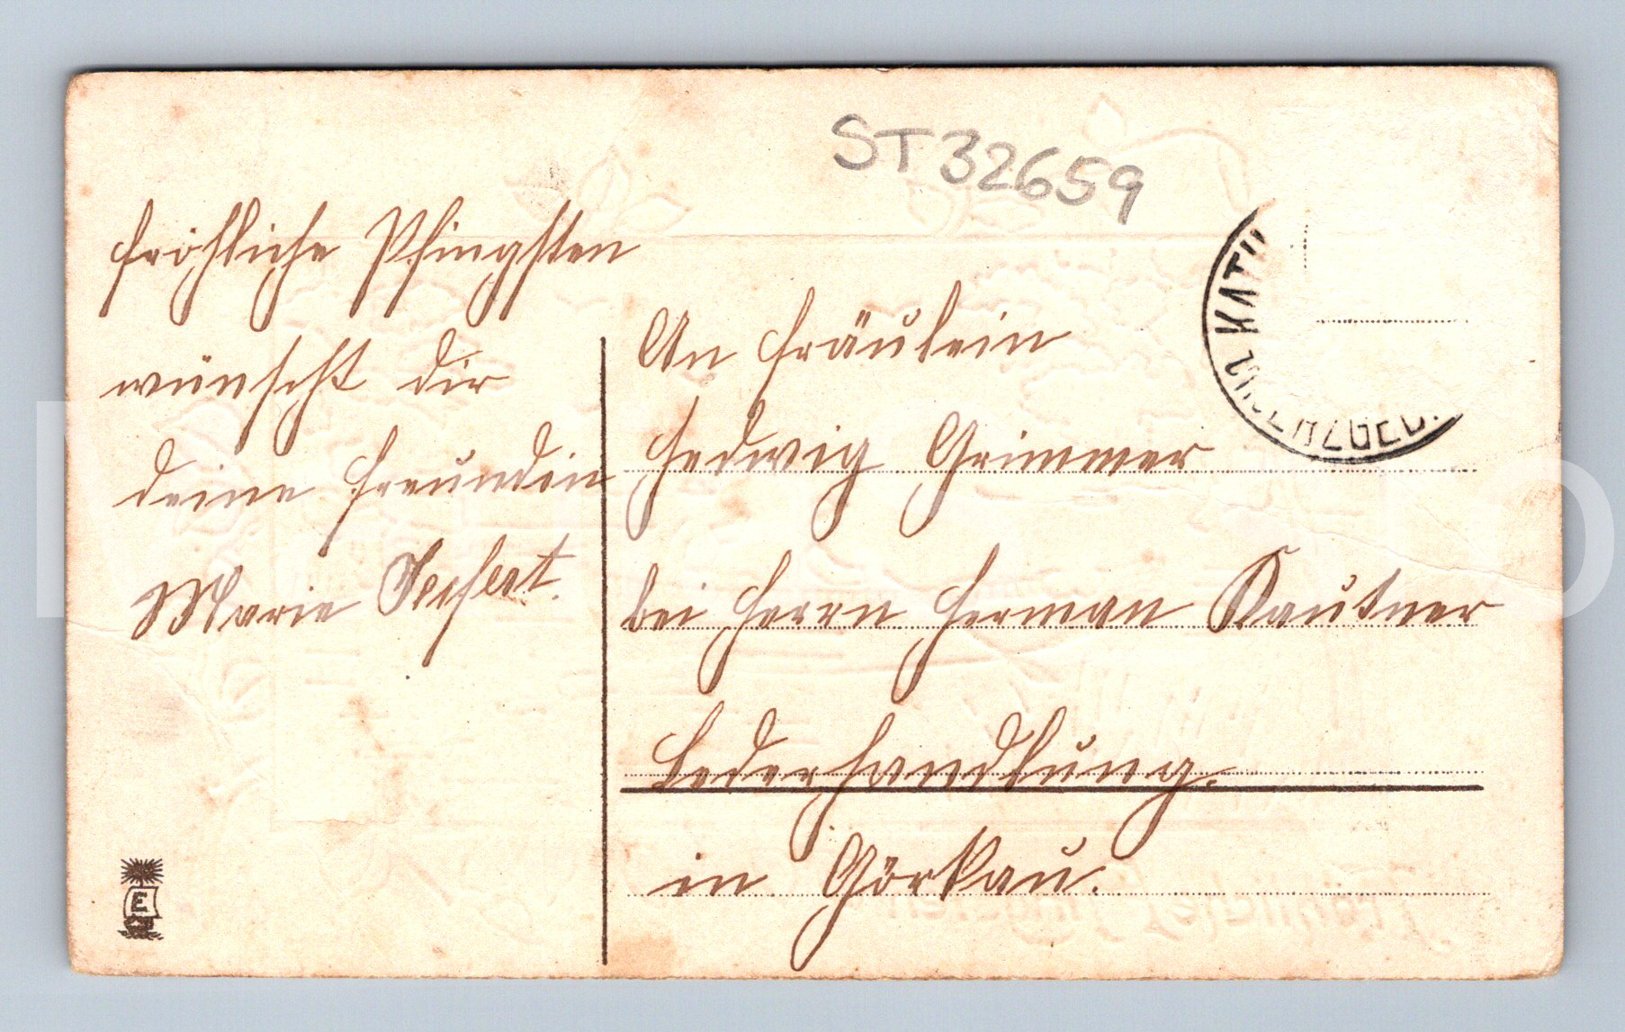 ST32659
fröhliche Pfingsten
wünscht dir
deine Freundin
Marie Seifert.
An Fräulein
Hedwig Grimmer
bei Herrn Herman Kautner
Lederhandlung.
in Görkau.
E
Fröhliches Pfingsten